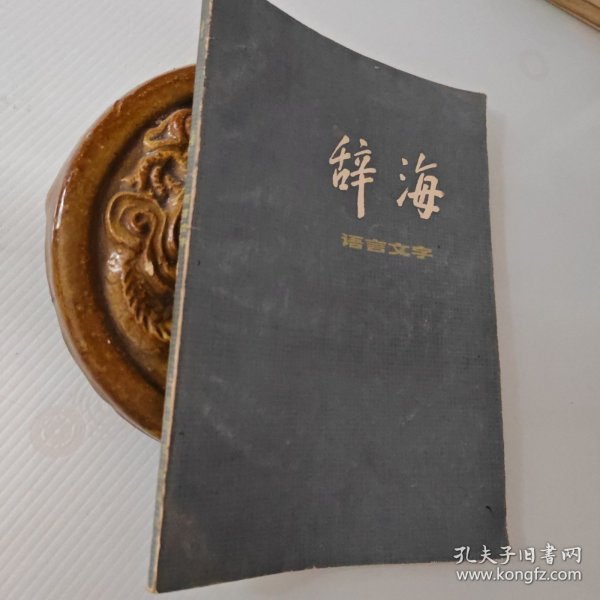 辞海
语言文字
孔夫子旧書网
www.kongfz.com